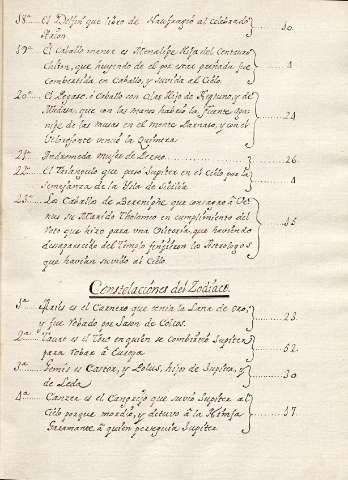 18ª El Delfin que libro de Naufragio al celebrado
Arion. 10
19ª El Caballo menor es Menalipe Hija del Centauro
Chiron, que huyendo de el por estar preñada fue
combertida en Caballo, y suvida al Cielo. 4
20ª El Pegaso, ó Caballo con Alas Hijo de Neptuno, y de
Medusa, que con las manos habrió la fuente Aga-
nipe de las musas en el monte Parnaso, y con el
Velerofonte venció la Quimera 24
21ª Andromeda Muger de Perseo 26
22ª El Triangulo que puso Jupiter en el Cielo por la
semejanza de la Ysla de Sicilia 4
23ª Los Caballos de Berenize que consagro á Ve-
nus su Marido Tholomeo en cumplimiento del
Voto que hizo para una Vitoria, que haviendo
desaparecido del Templo fingieron los Astrologos
que havian suvido al Cielo. 45
Constelaciones del Zodiaco.
1ª Aries es el Carnero que tenia la Lana de oro,
y fue robado por Jason de Colcos. 23
2ª Tauro es el Toro en quien se combirtió Jupiter
para robar á Europa 52
3ª Geminis es Castor, y Polus, hijo de Jupiter, y
de Leda 30
4ª Canzer es el Cangrejo que suvió Jupiter al
Cielo porque mordió, y detuvo á la Nimfa
Garamante á quien perseguia Jupiter 17